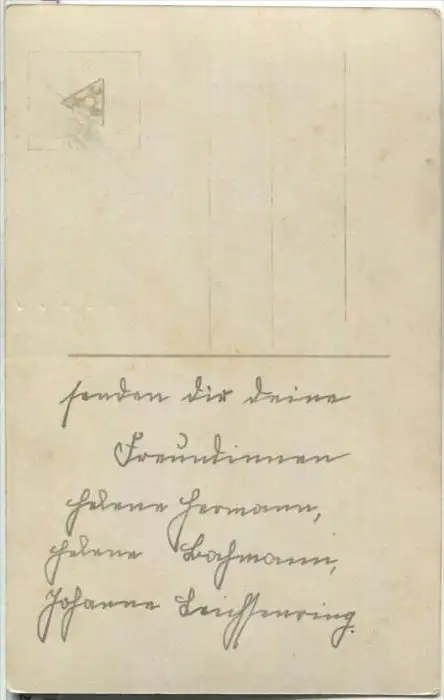 senden dir deine
Freundinnen
Helene Hermann,
Helene Bachmann,
Johanne Leichsenring.